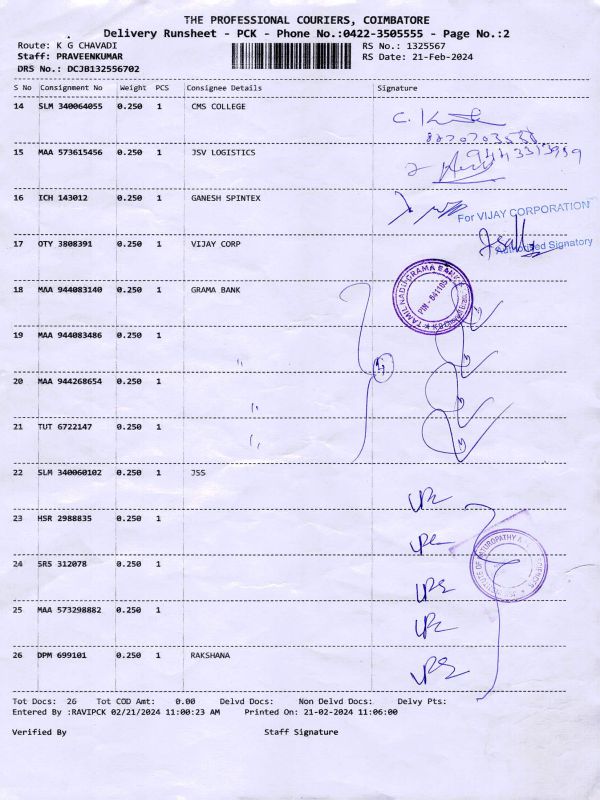 THE PROFESSIONAL COURIERS, COIMBATORE
Delivery Runsheet - PCK - Phone No.:0422-3505555 - Page No.:2
Route: K G CHAVADI RS No.: 1325567
Staff: PRAVEENKUMAR RS Date: 21-Feb-2024
DRS No.: DCJB132556702
S No Consignment No Weight PCS Consignee Details Signature
14 SLM 340064055 0.250 1 CMS COLLEGE
15 MAA 573615456 0.250 1 JSV LOGISTICS
16 ICH 143012 0.250 1 GANESH SPINTEX
For VIJAY CORPORATION
17 OTY 3808391 0.250 1 VIJAY CORP
Authorised Signatory
18 MAA 944083140 0.250 1 GRAMA BANK
TAMIL NADU GRAMA BANK
PIN - 641105
19 MAA 944083486 0.250 1 "
4
20 MAA 944268654 0.250 1 "
21 TUT 6722147 0.250 1 "
22 SLM 340060102 0.250 1 JSS
23 HSR 2988835 0.250 1
24 SRS 312078 0.250 1
25 MAA 573298882 0.250 1
26 DPM 699101 0.250 1 RAKSHANA
Tot Docs: 26 Tot COD Amt: 0.00 Delvd Docs: Non Delvd Docs: Delvy Pts:
Entered By :RAVIPCK 02/21/2024 11:00:23 AM Printed On: 21-02-2024 11:06:00
Verified By Staff Signature